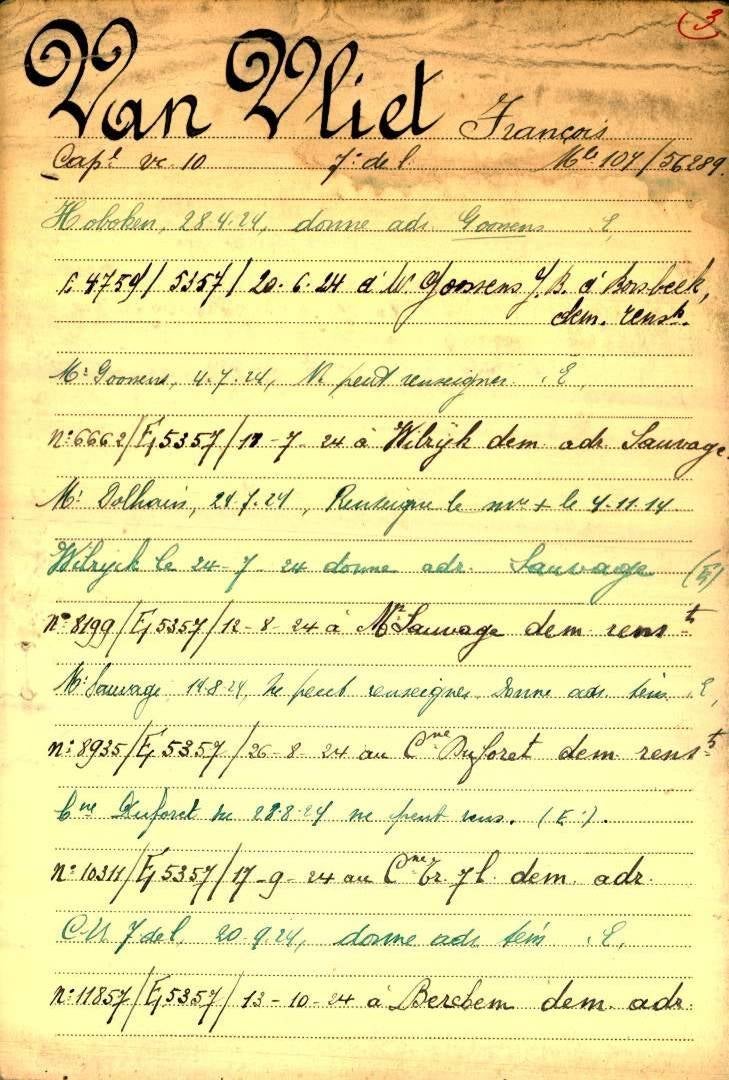 3
Van Vliet François
Capl vc. 10 7e de l. Mle 107/56289.
Hoboken, 28.4.24, donne adr. Goossens E,
E 4759/5357/20.6.24 à Mr Goossens J.B. à Borsbeek,
dem. renst.
Mr Goossens, 4.7.24, Ne peut renseigner. E,
n° 6662/E, 5357/17-7-24 à Wilryk dem adr Sauvage.
Mr Dolhain, 24.7.24, Renseigne le mre + le 4.11.14
Wilryck le 24-7-24 donne adr. Sauvage (E)
n° 8199/E, 5357/12-8-24 à Mr Sauvage dem renst
Mr Sauvage 14.8.24, Ne peut renseigner. Donne adr. tém. E,
n° 8935/E, 5357/26-8-24 au Cne Duforet dem renst
Cne Duforet le 28.8.24 ne peut rens. (E).
n° 10311/E, 5357/17-9-24 au Cne Tr. 7 l. dem. adr.
C.M. 7 de l. 20.9.24, donne adr tém. E,
n° 11857/E, 5357/13-10-24 à Berchem dem. adr.